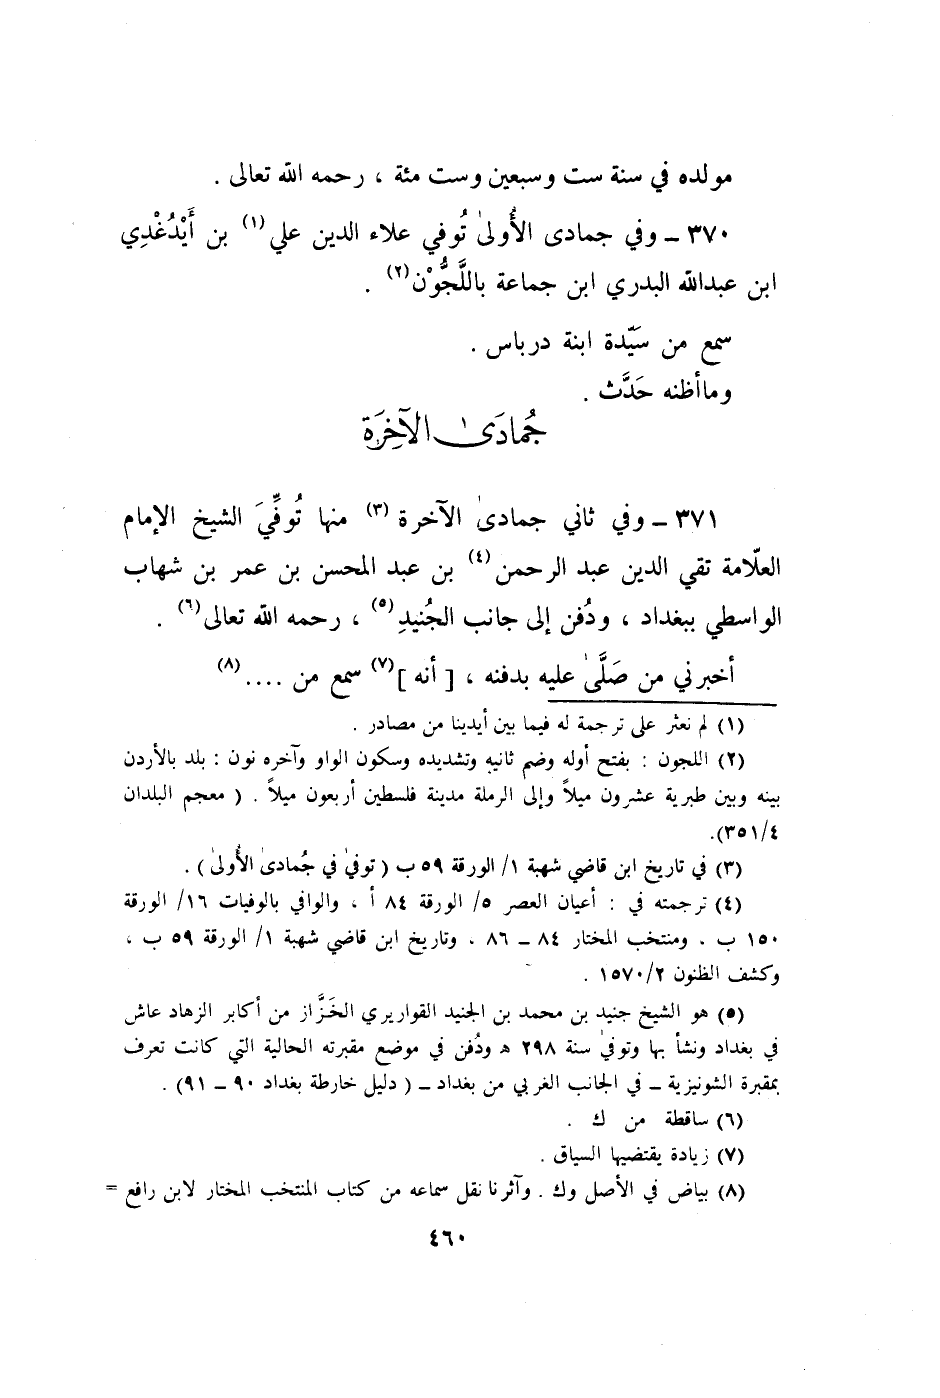 مولده في سنة ست وسبعين وست مئة ، رحمه الله تعالى .
٣٧٠ ـ وفي جمادى الأُولىٰ تُوفي علاء الدين علي (١) بن أَيْدُغْدِي
ابن عبدالله البدري ابن جماعة باللَّجُّوْن (٢) .
سمع من سَيّدة ابنة درباس .
وماأظنه حَدَّث .
جُمادَىٰ الآخِرَة
٣٧١ ـ وفي ثاني جمادىٰ الآخرة (٣) منها تُوفِّيَ الشيخ الإمام
العلّامة تقي الدين عبد الرحمن (٤) بن عبد المحسن بن عمر بن شهاب
الواسطي ببغداد ، ودُفن إلى جانب الجُنيدِ (٥) ، رحمه الله تعالى (٦) .
أخبرني من صَلَّىٰ عليه بدفنه ، [ أنه ] (٧) سمع من .... (٨)
(١) لم نعثر على ترجمة له فيما بين أيدينا من مصادر .
(٢) اللجون : بفتح أوله وضم ثانيه وتشديده وسكون الواو وآخره نون : بلد بالأردن
بينه وبين طبرية عشرون ميلاً وإلى الرملة مدينة فلسطين أربعون ميلاً . ( معجم البلدان
٣٥١/٤).
(٣) في تاريخ ابن قاضي شهبة ١/ الورقة ٥٩ ب ( توفي في جُمادىٰ الأُولىٰ ) .
(٤) ترجمته في : أعيان العصر ٥/ الورقة ٨٤ أ ، والوافي بالوفيات ١٦/ الورقة
١٥٠ ب . ومنتخب المختار ٨٤ ـ ٨٦ ، وتاريخ ابن قاضي شهبة ١/ الورقة ٥٩ ب ،
وكشف الظنون ١٥٧٠/٢ .
(٥) هو الشيخ جنيد بن محمد بن الجنيد القواريري الخَزَّاز من أكابر الزهاد عاش
في بغداد ونشأ بها وتوفي سنة ٢٩٨ هـ ودُفن في موضع مقبرته الحالية التي كانت تعرف
بمقبرة الشونيزية ـ في الجانب الغربي من بغداد ـ ( دليل خارطة بغداد ٩٠ ـ ٩١ ) .
(٦) ساقطة من ك .
(٧) زيادة يقتضيها السياق .
(٨) بياض في الأصل وك . وآثرنا نقل سماعه من كتاب المنتخب المختار لابن رافع =
٤٦٠